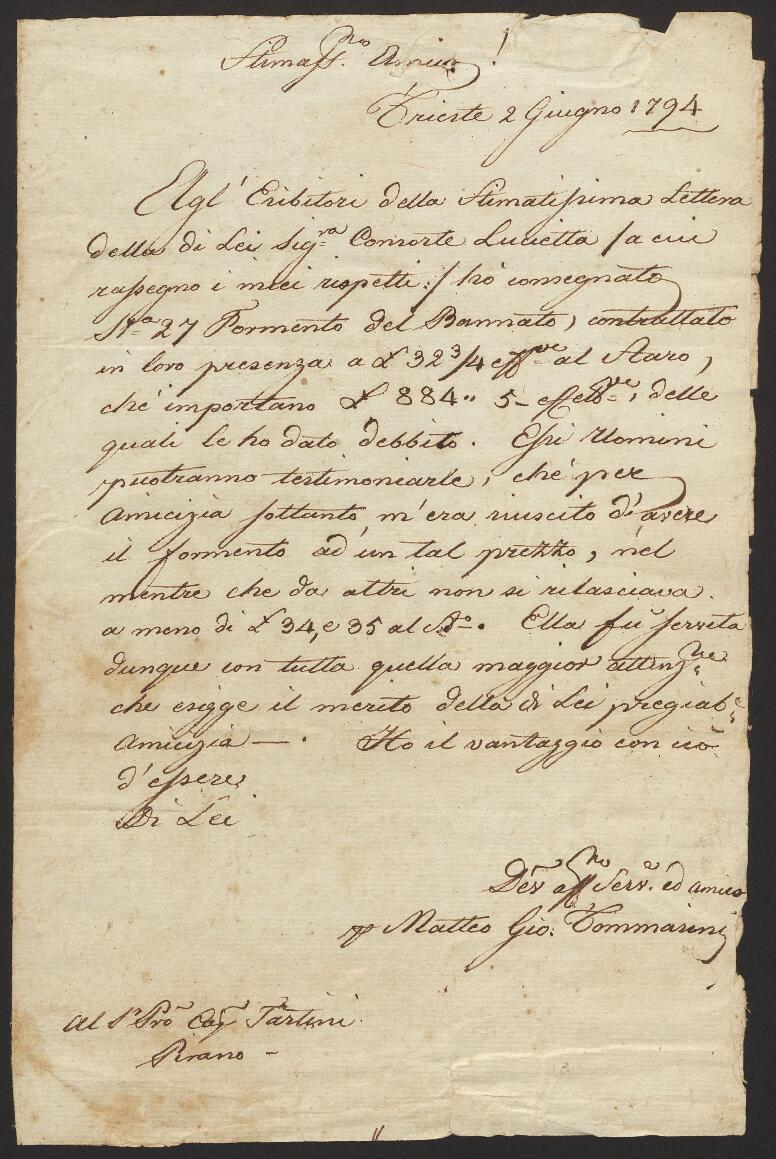 Stimass.mo Amico!
Trieste 2 Giugno 1794
Agl' Esibitori della Stimatissima Lettera
della di Lei Sig.ra Consorte Lucietta /a cui
rassegno i miei rispetti:/ hò consegnato
St.a 27 Formento del Bannato, contrattato
in loro presenza a £ 32 3/4 eff.ve al Staro,
che importano £ 884.. 5- effett.ve, delle
quali le ho dato debbito. Essi Uomini
puotranno testimoniarle, che per
amicizia sottanto m'era riuscito d'avere
il formento ad un tal prezzo, nel
mentre che da altri non si rilasciava
a meno di £ 34, e 35 al St.o. Ella fù servita
dunque con tutta quella maggior attenz.ne
che esigge il merito della di Lei pregiab.e
amicizia —. Ho il vantaggio con ciò
d'essere
Di Lei
Dev. aff.mo Serv.e ed amico
Matteo Gio. Tommasini
Al S.r Pro Tartini
Pirano -